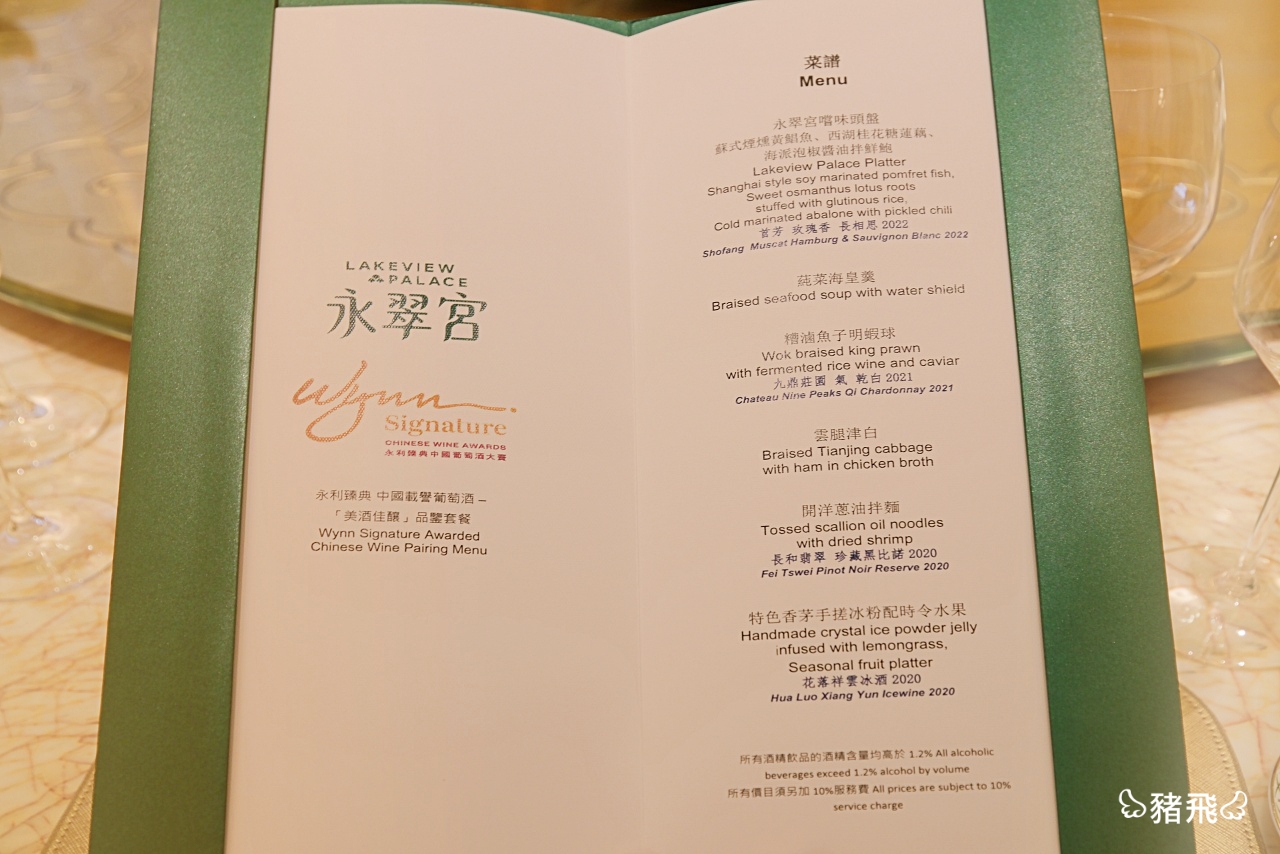 LAKEVIEW
PALACE
永翠宮
Wynn
Signature
CHINESE WINE AWARDS
永利臻典中國葡萄酒大賽
永利臻典 中國載譽葡萄酒 –
「美酒佳釀」品鑒套餐
Wynn Signature Awarded
Chinese Wine Pairing Menu
菜譜
Menu
永翠宮嚐味頭盤
蘇式煙燻黃鯧魚、西湖桂花糖蓮藕、
海派泡椒醬油拌鮮鮑
Lakeview Palace Platter
Shanghai style soy marinated pomfret fish,
Sweet osmanthus lotus roots
stuffed with glutinous rice,
Cold marinated abalone with pickled chili
首芳 玫瑰香 長相思 2022
Shofang Muscat Hamburg & Sauvignon Blanc 2022
蒓菜海皇羹
Braised seafood soup with water shield
糟滷魚子明蝦球
Wok braised king prawn
with fermented rice wine and caviar
九鼎莊園 氣 乾白 2021
Chateau Nine Peaks Qi Chardonnay 2021
雲腿津白
Braised Tianjing cabbage
with ham in chicken broth
開洋蔥油拌麵
Tossed scallion oil noodles
with dried shrimp
長和翡翠 珍藏黑比諾 2020
Fei Tswei Pinot Noir Reserve 2020
特色香茅手搓冰粉配時令水果
Handmade crystal ice powder jelly
infused with lemongrass,
Seasonal fruit platter
花落祥雲冰酒 2020
Hua Luo Xiang Yun Icewine 2020
所有酒精飲品的酒精含量均高於 1.2% All alcoholic
beverages exceed 1.2% alcohol by volume
所有價目須另加 10%服務費 All prices are subject to 10%
service charge
豬飛